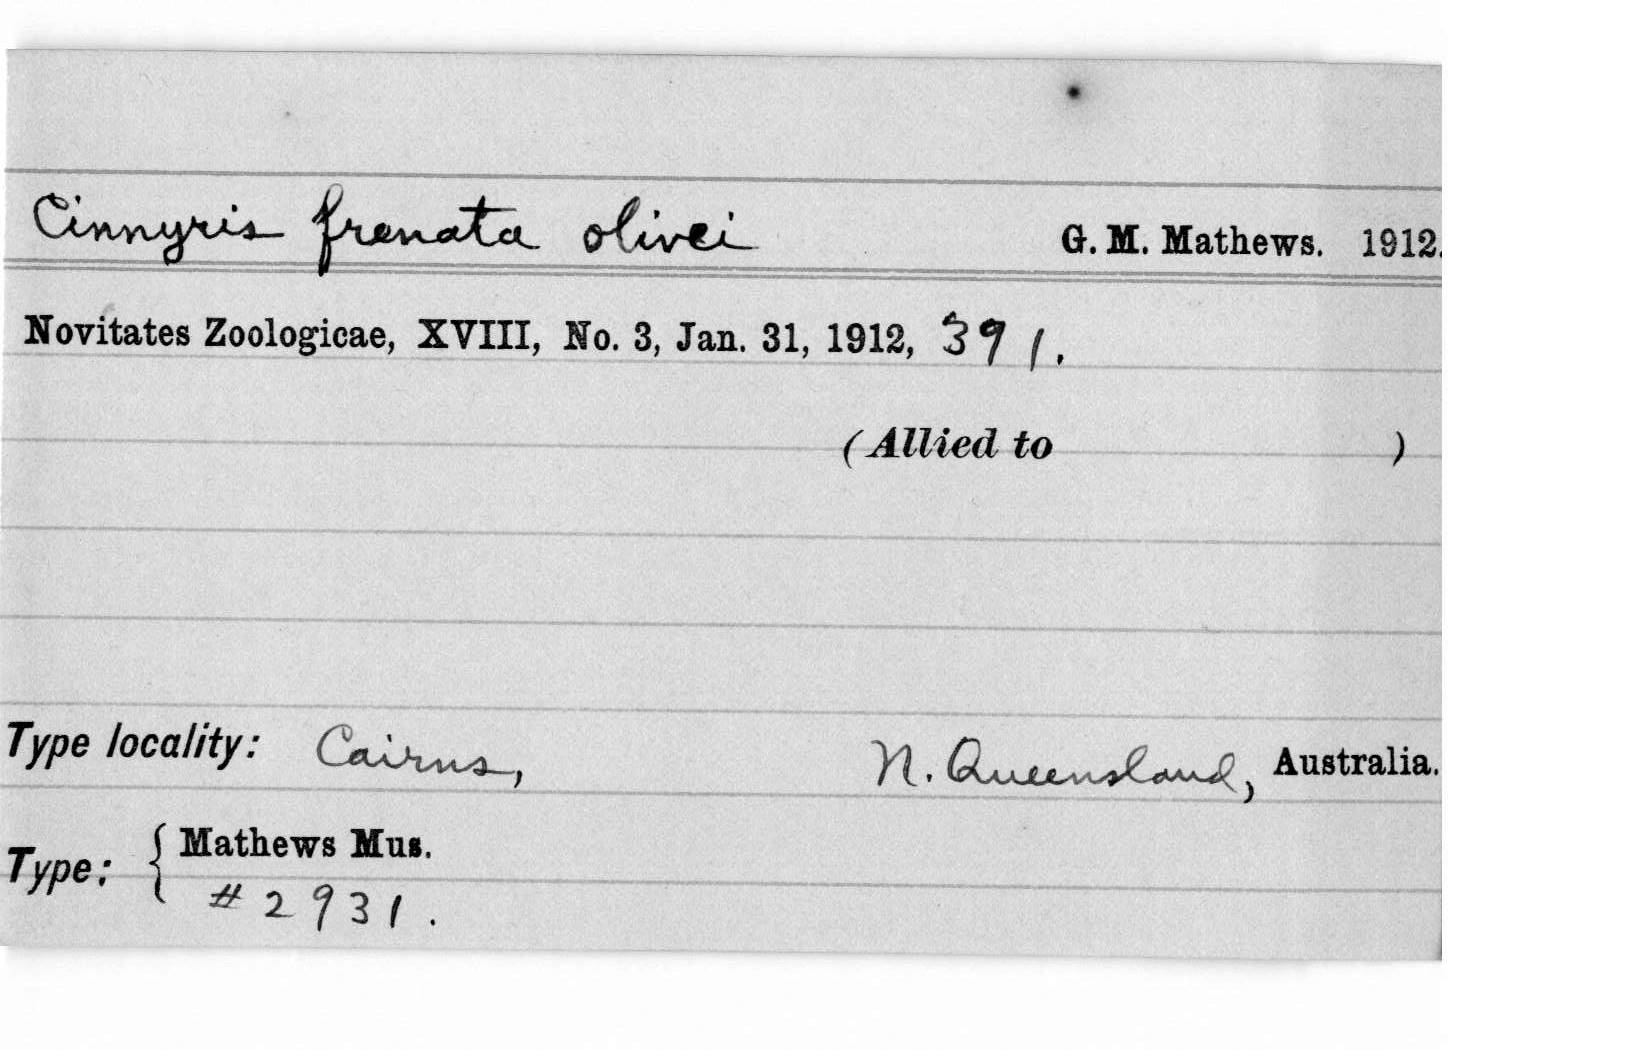 Cinnyris frenata olivei G. M. Mathews. 1912.
Novitates Zoologicae, XVIII, No. 3, Jan. 31, 1912, 391.
(Allied to )
Type locality: Cairns, N. Queensland, Australia.
Type: { Mathews Mus.
# 2931.